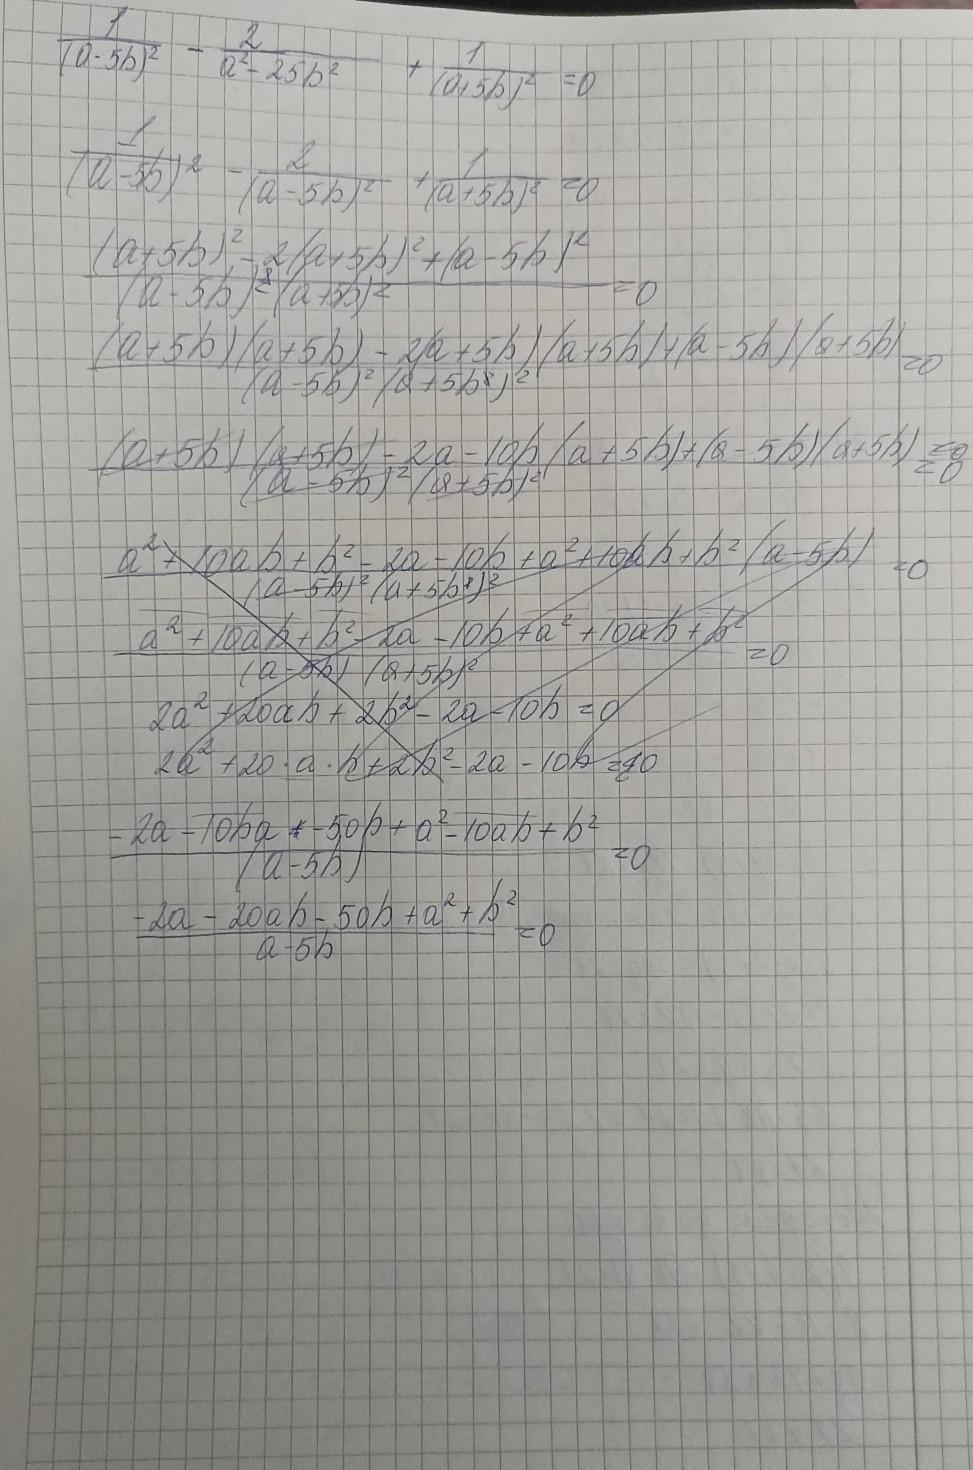 1/(a-5b)² - 2/(a²-25b²) + 1/(a+5b)² =0
1/(a-5b)² - 2/(a-5b)² + 1/(a+5b)² =0
((a+5b)² - 2(a+5b)² + (a-5b)²)/((a-5b)² (a+5b)²) =0
((a+5b)(a+5b) - 2(a+5b)(a+5b)+(a-5b)(a+5b))/((a-5b)² (a+5b)²) =0
((a+5b)(a+5b) - 2a - 10b(a+5b)+(a-5b)(a+5b))/((a-5b)² (a+5b)²) =0
(a² + 10ab + b² - 2a - 10b + a² + 10ab + b² (a-5b))/((a-5b)² (a+5b)²) =0
(a² + 10ab + b² - 2a - 10b + a² + 10ab + b²)/((a-5b) (a+5b)²) =0
2a² + 20ab + 2b² - 2a - 10b = 0
2a² + 20·a·b + 2b² - 2a - 10b = 0
(-2a - 10ba - 50b + a² - 10ab + b²)/((a-5b)) =0
(-2a - 20ab - 50b + a² + b²)/(a-5b) =0